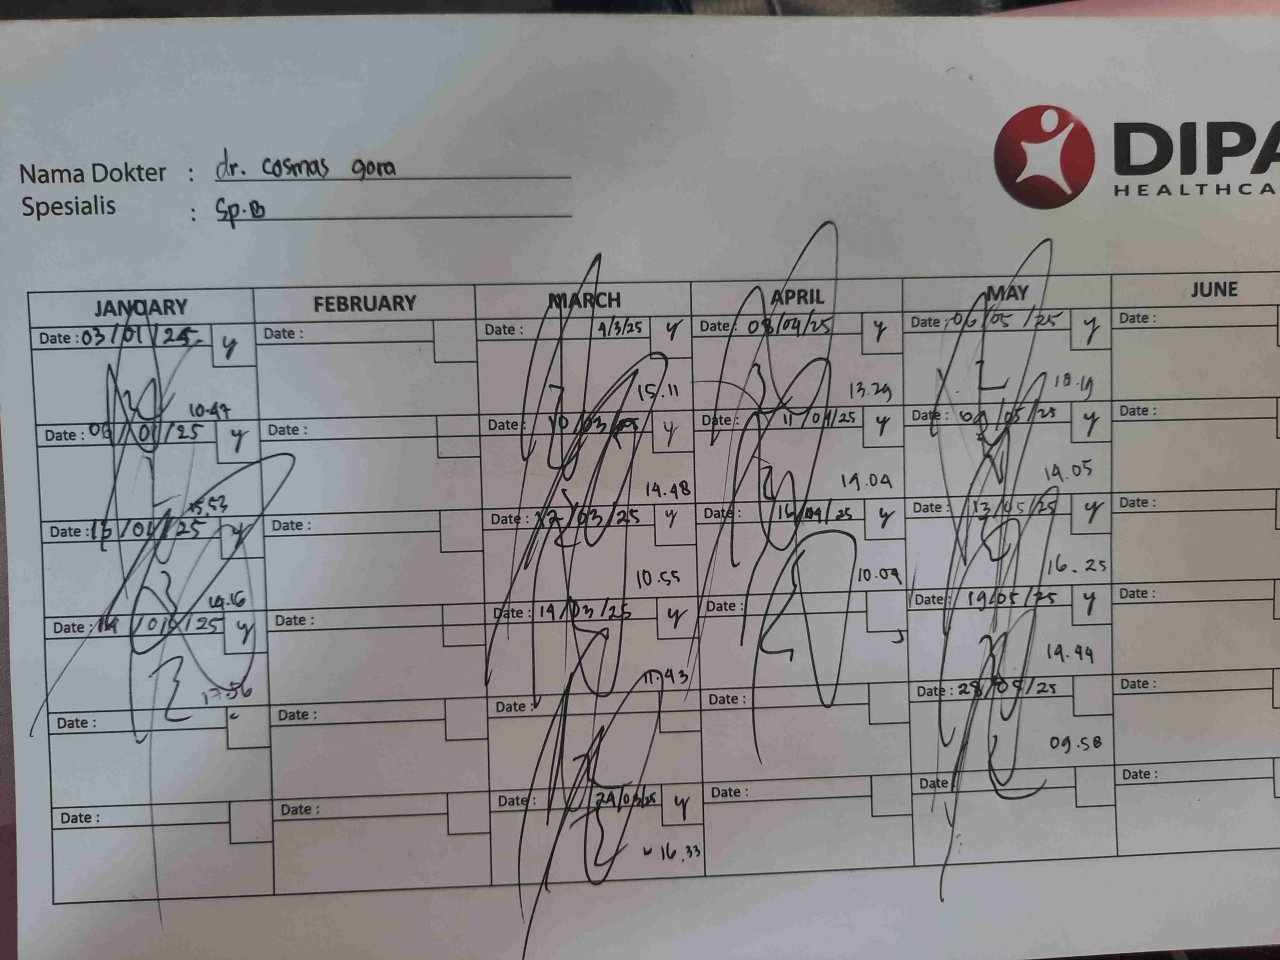 DIPA
HEALTHCA
Nama Dokter : dr. cosmas gora
Spesialis : Sp.B
JANUARY FEBRUARY MARCH APRIL MAY JUNE
Date : 03/01/25 y Date : Date : 4/3/25 y Date : 08/04/25 y Date : 06/05/25 y Date :
10.47 15.11 13.29 18.19
Date : 06/01/25 y Date : Date : 10/03/25 y Date : 11/04/25 y Date : 09/05/25 y Date :
15.53 14.48 14.04 14.05
Date : 13/01/25 y Date : Date : 12/03/25 y Date : 16/04/25 y Date : 13/05/25 y Date :
14.16 10.55 10.04 16.25
Date : /25 y Date : Date : 14/03/25 y Date : Date : 19/05/25 y Date :
17.56 17.43 14.44
Date : Date : Date : Date : Date : 28/05/25 Date :
09.58
Date : Date : Date : 24/03/25 y Date : Date : Date :
16.33